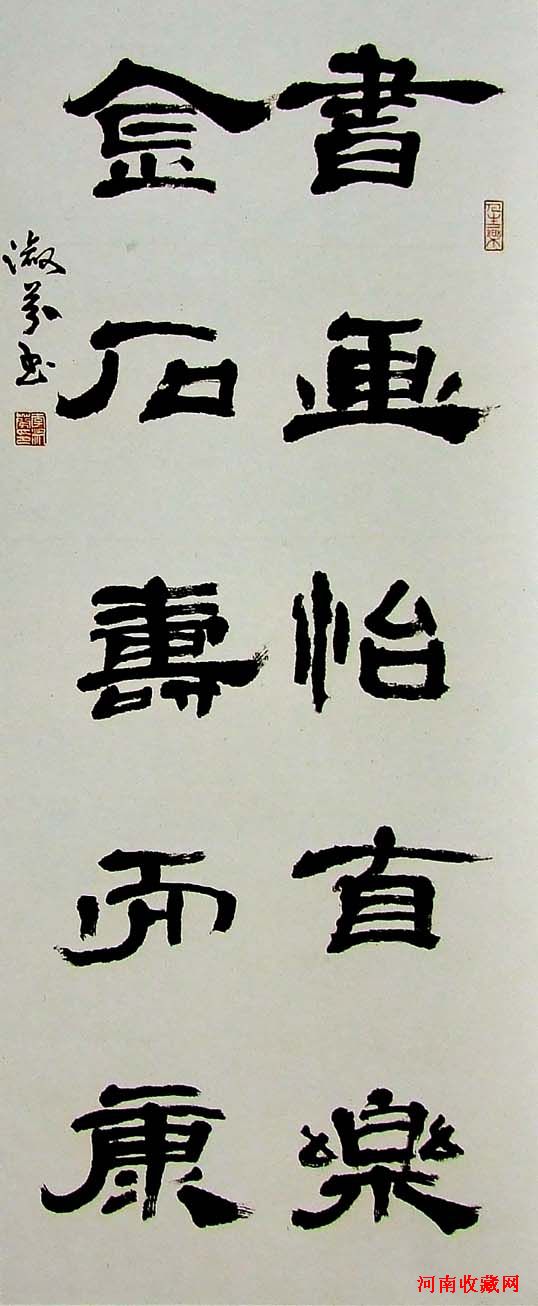 書畫怡樂
金石壽而康
淑芬书
河南收藏网